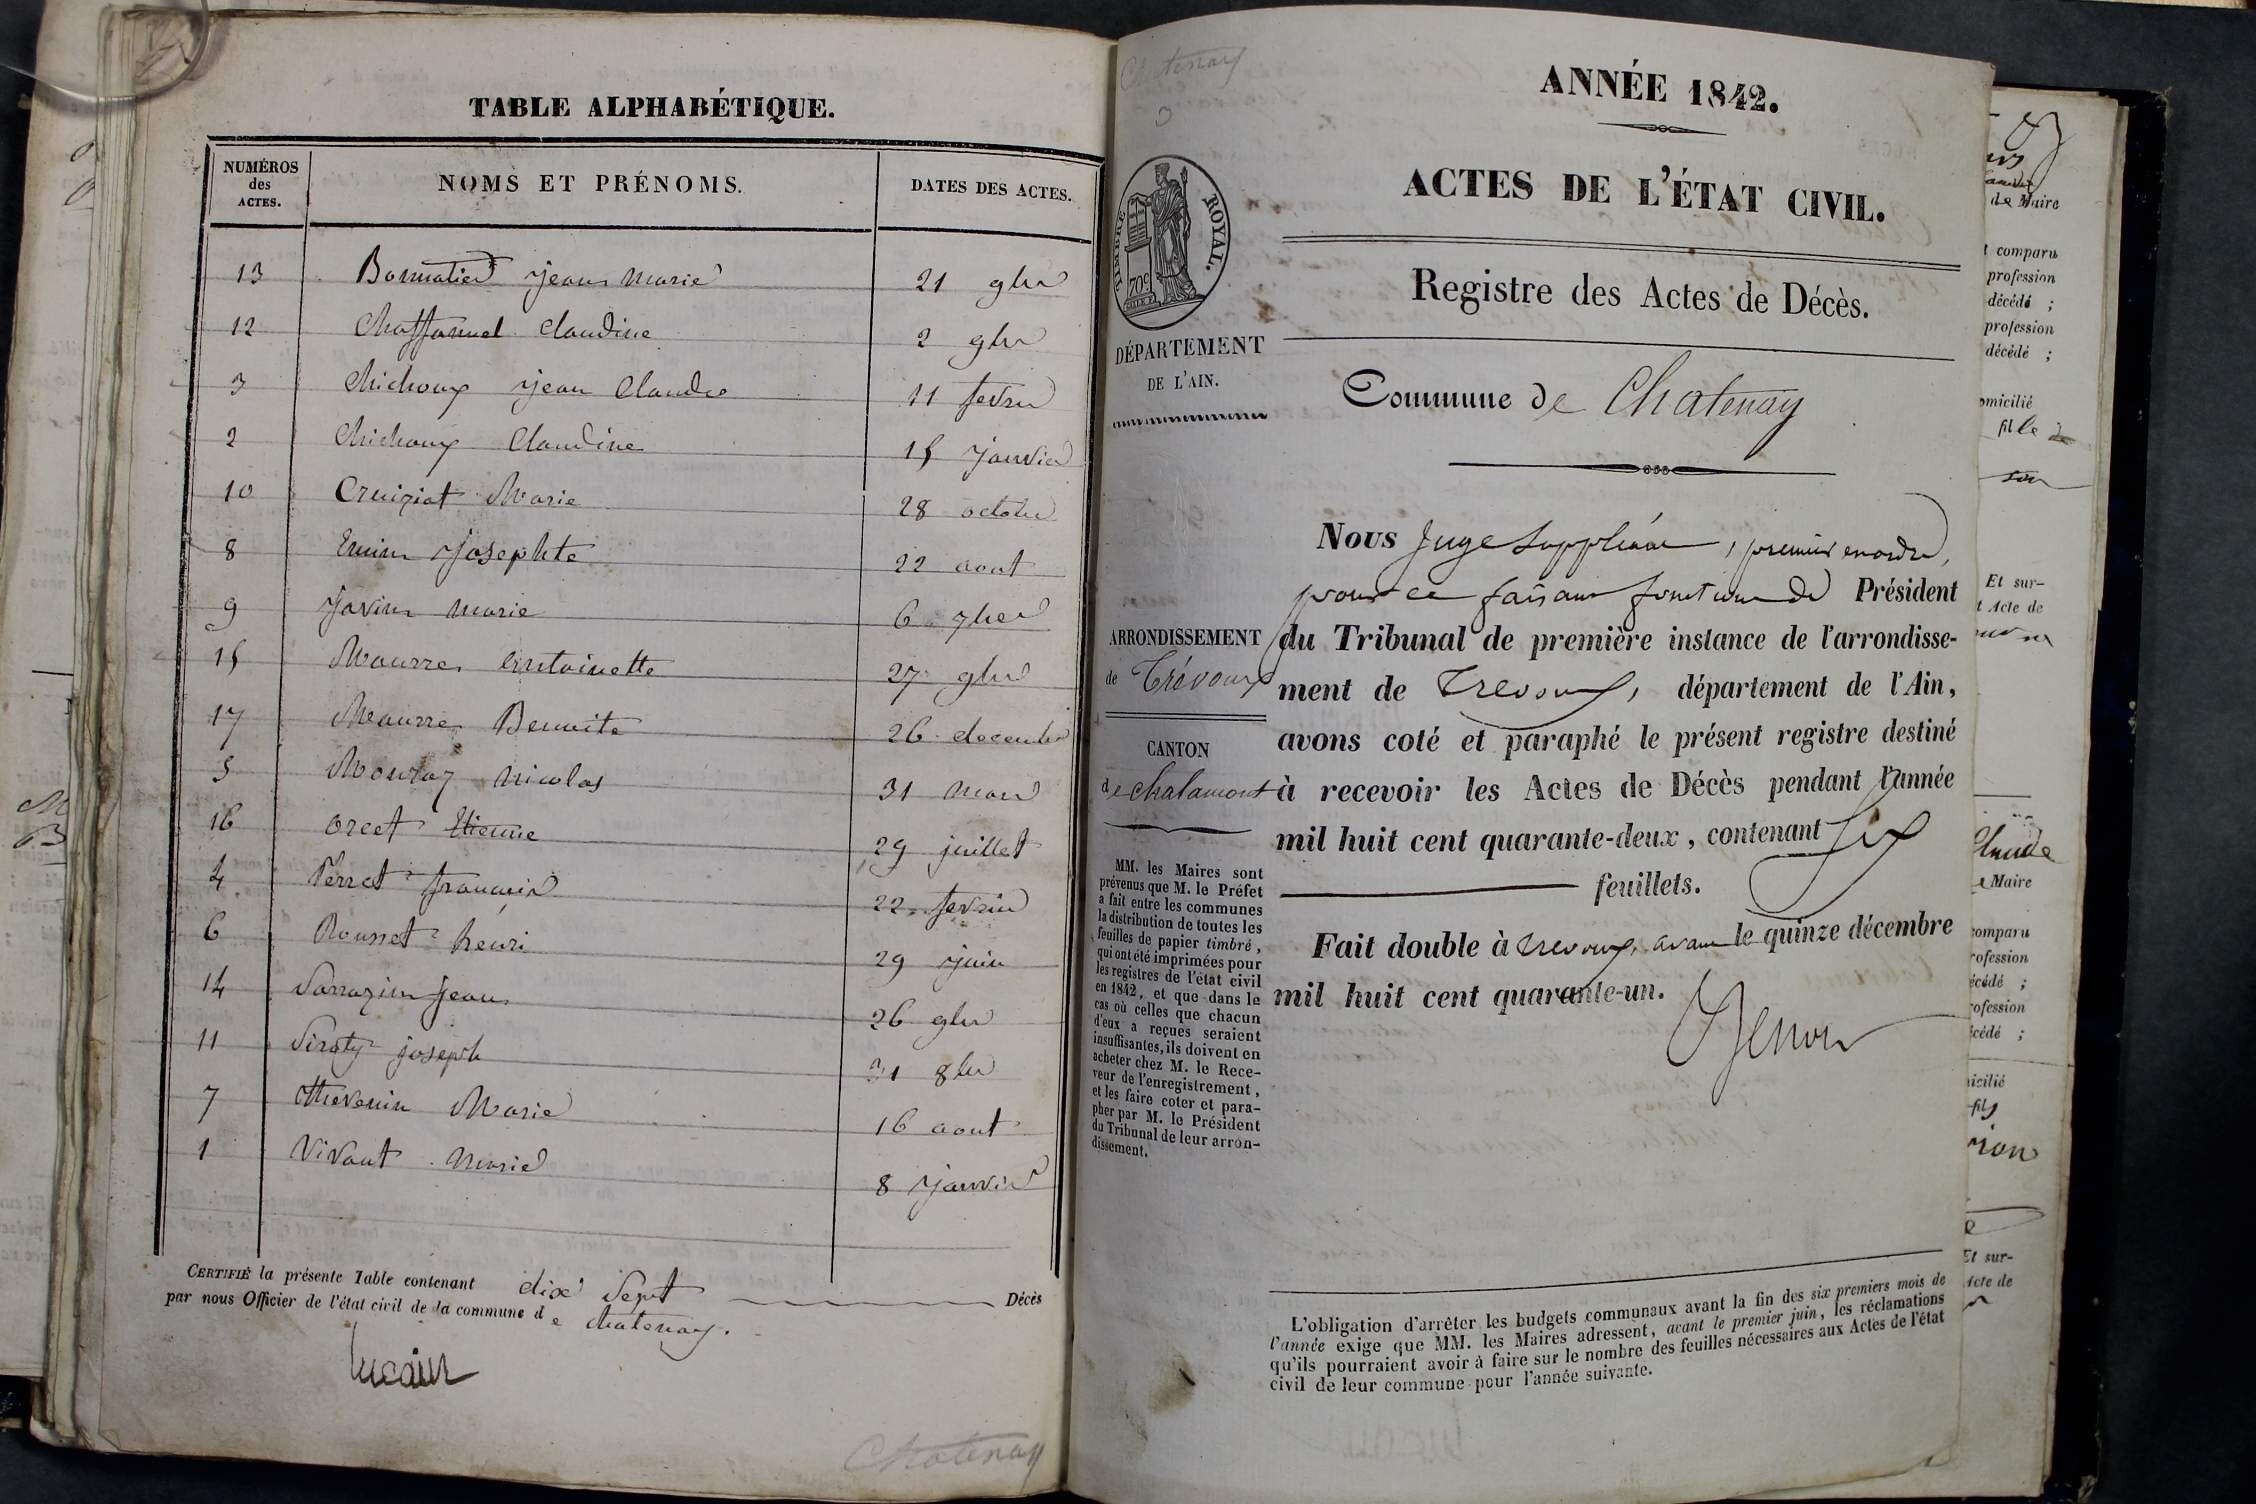 TABLE ALPHABÉTIQUE.
NUMÉROS des ACTES. NOMS ET PRÉNOMS. DATES DES ACTES.
13 Bonnatier jean marie 21 9bre
12 Claudine 2 9bre
3 Chichoux jean Claude 11 fevrier
2 Chichoux Claudine 15 janvier
10 Cruiziat Marie 28 octobre
8 josephte 22 aout
9 javin marie 6 7bre
15 Mourre antoinette 27 9bre
17 Mourre Benoite 26 decembre
5 nicolas 31 mars
16 orcet Etienne 29 juillet
4 Perret francois 22 fevrier
6 Rousset henri 29 juin
14 Sarrazin jean 26 9bre
11 joseph 31 8bre
7 thevenin Marie 16 aout
1 Vivant marie 8 janvier
CERTIFIÉ la présente Table contenant dix sept Décès
par nous Officier de l'état civil de la commune de chatenay.
Chatenay
Chatenay
ANNÉE 1842.
ACTES DE L'ÉTAT CIVIL.
TIMBRE ROYAL.
70c
Registre des Actes de Décès.
DÉPARTEMENT
DE L'AIN.
Commune de Chatenay
Nous Juge Suppléant, premier en ordre,
pour ce faisant fonctions de Président
ARRONDISSEMENT
de Trévoux
du Tribunal de première instance de l'arrondisse-
ment de Trevoux, département de l'Ain,
avons coté et paraphé le présent registre destiné
CANTON
de chalamont
à recevoir les Actes de Décès pendant l'année
mil huit cent quarante-deux, contenant six
feuillets.
Fait double à trevoux, avant le quinze décembre
mil huit cent quarante-un.
MM. les Maires sont
prévenus que M. le Préfet
a fait entre les communes
la distribution de toutes les
feuilles de papier timbré,
qui ont été imprimées pour
les registres de l'état civil
en 1842, et que dans le
cas où celles que chacun
d'eux a reçues seraient
insuffisantes, ils doivent en
acheter chez M. le Rece-
veur de l'enregistrement,
et les faire coter et para-
pher par M. le Président
du Tribunal de leur arron-
dissement.
L'obligation d'arrêter les budgets communaux avant la fin des six premiers mois de
l'année exige que MM. les Maires adressent, avant le premier juin, les réclamations
qu'ils pourraient avoir à faire sur le nombre des feuilles nécessaires aux Actes de l'état
civil de leur commune pour l'année suivante.
de Maire
comparu
profession
décédé ;
profession
décédé ;
omicilié
fille de
son
Et sur-
t Acte de
Claude
Maire
comparu
rofession
écédé ;
rofession
écédé ;
icilié
fils
Et sur-
Acte de